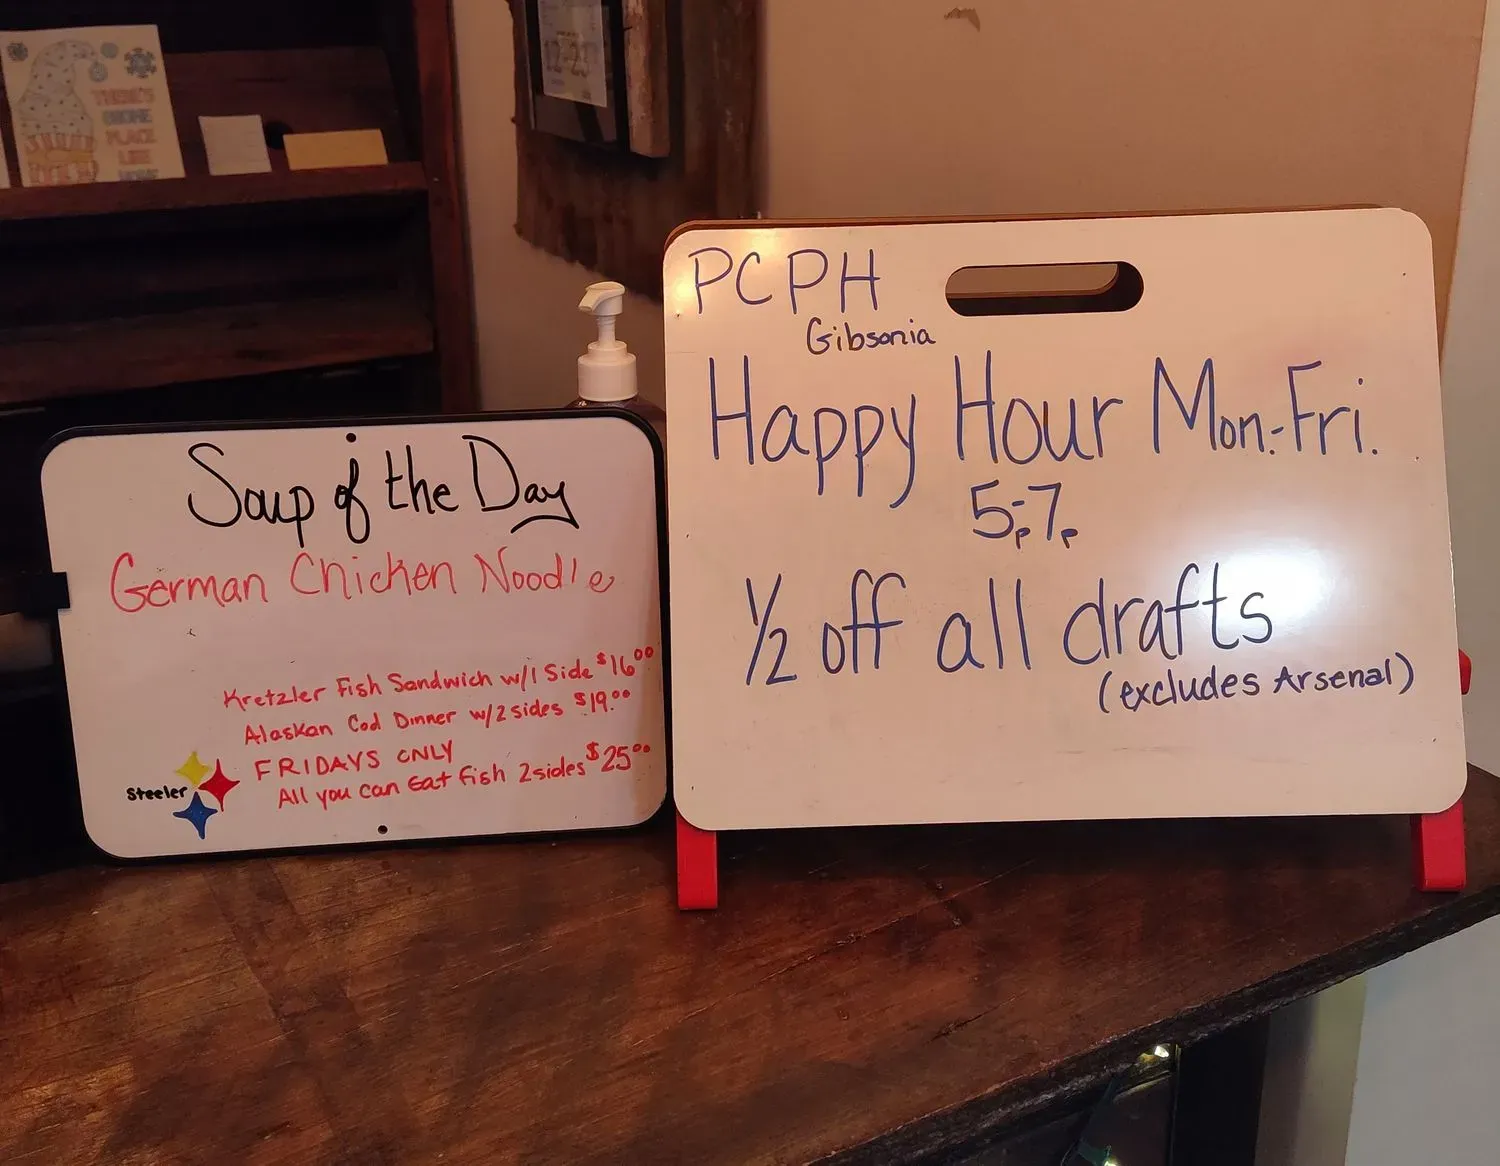 THERE'S
GNOME
PLACE
LIKE
HOME
PCPH
Gibsonia
Happy Hour Mon.-Fri.
5p-7p
1/2 off all drafts
(excludes Arsenal)
Soup of the Day
German Chicken Noodle
Kretzler Fish Sandwich w/1 Side $16.00
Alaskan Cod Dinner w/2 sides $19.00
FRIDAYS ONLY
All you can Eat fish 2 sides $25.00
Steeler